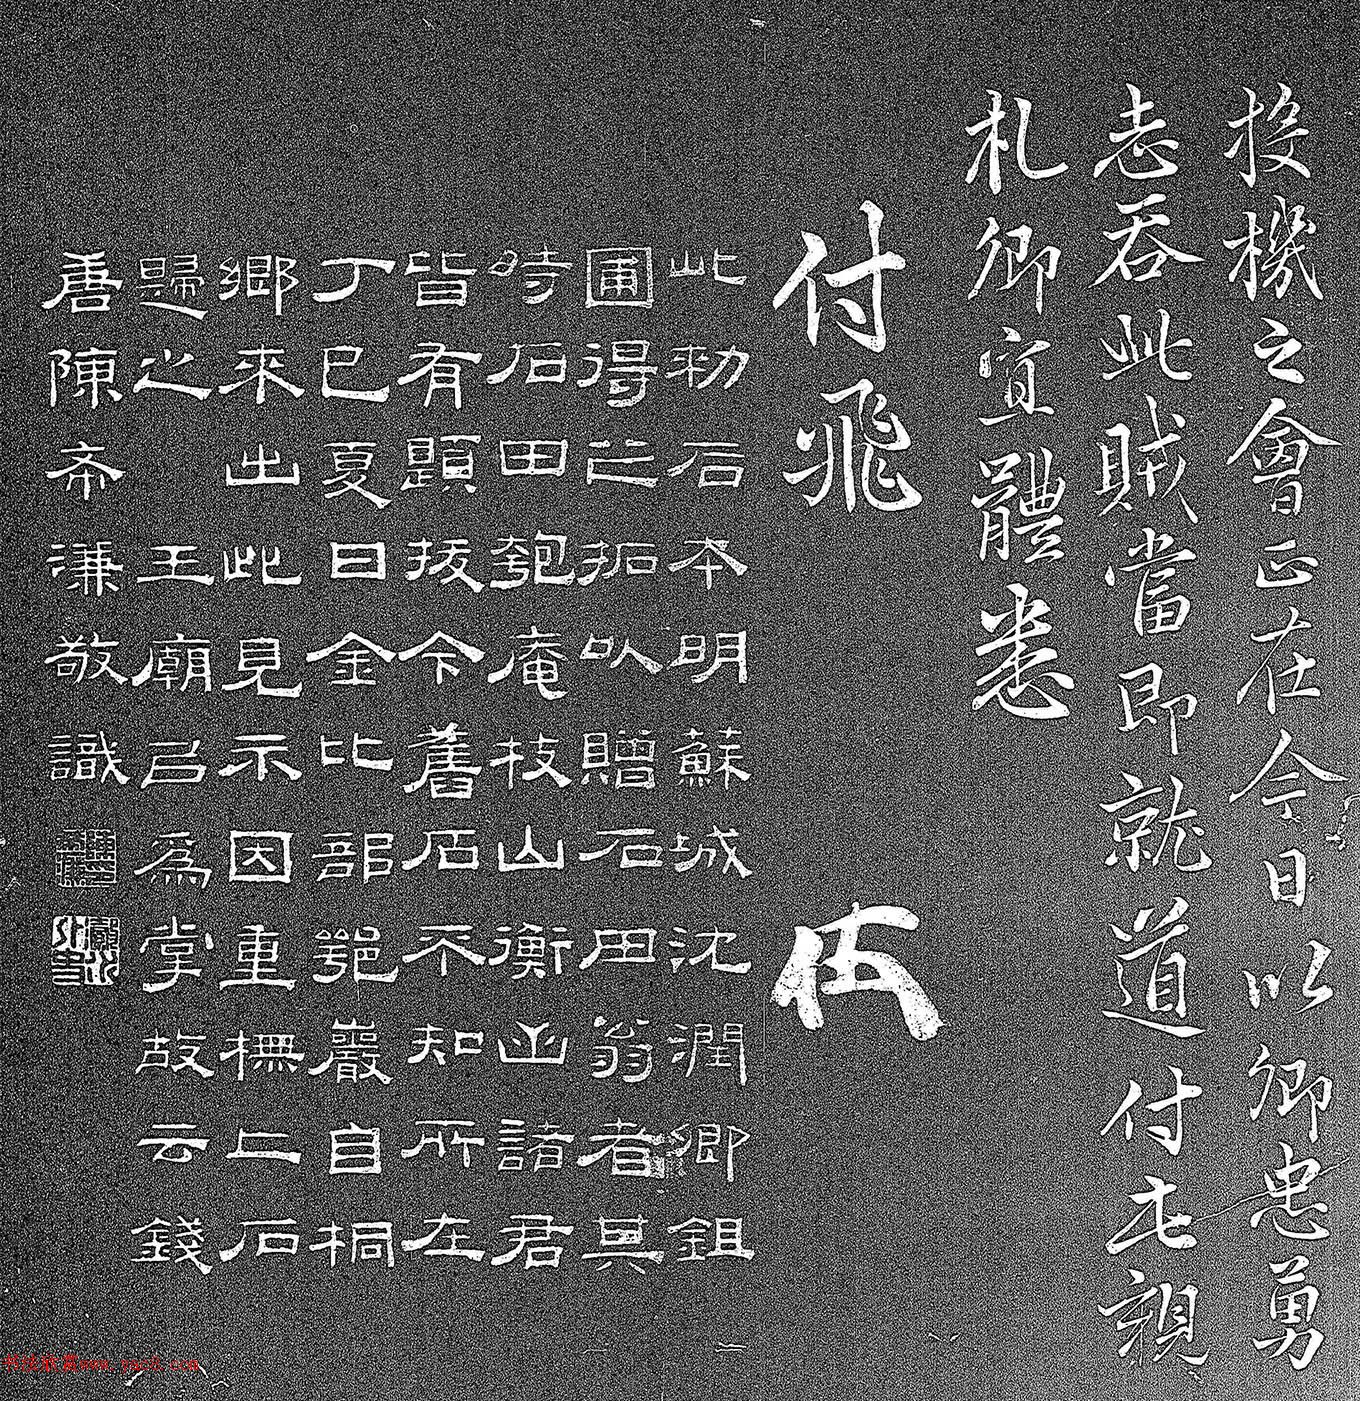 投機之會正在今日以卿忠勇
志吞此賊當即就道付此親
札卿宜體悉
付飛
此勅石本明蘇城沈潤卿鉏
圃得之拓以贈石田翁者其
時石田匏庵枝山衡山諸君
皆有題拔今舊石不知所在
丁巳夏日金比部鄂巖自桐
鄉來出此見示因重橅上石
歸之 王廟以爲掌故云錢
唐陳希濂敬識
书法欣赏www.yac8.com